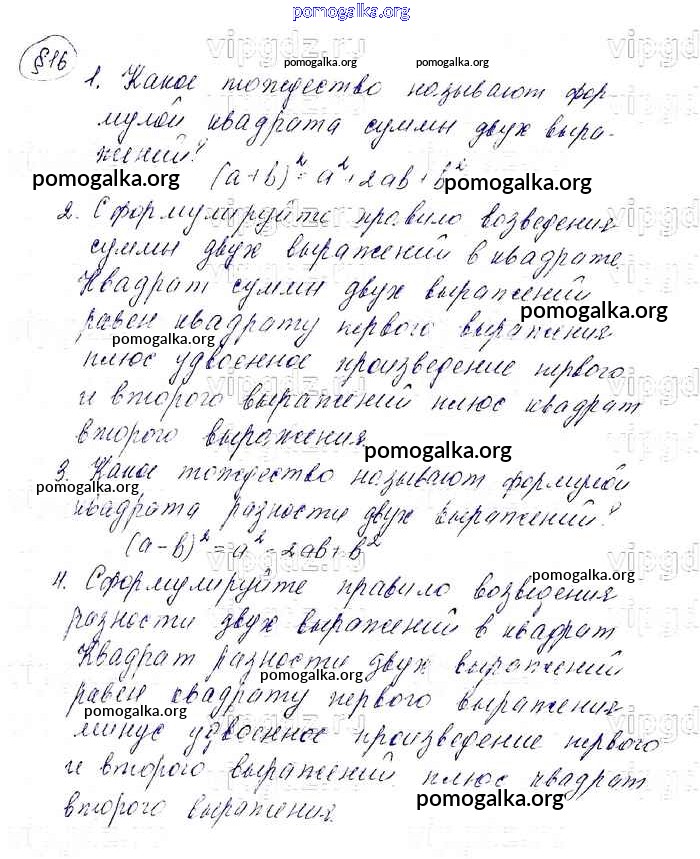 pomogalka.org
vipgdz.ru
§16
pomogalka.org pomogalka.org
1. Какое тождество называют фор-
мулой квадрата суммы двух выра-
жений?
pomogalka.org
(a+b)² = a² + 2ab + b²
pomogalka.org
2. Сформулируйте правило возведения
суммы двух выражений в квадрате.
Квадрат суммы двух выражений
pomogalka.org
равен квадрату первого выражения
pomogalka.org pomogalka.org
плюс удвоенное произведение первого
vipgdz.ru vipgd
и второго выражений плюс квадрат
второго выражения
pomogalka.org
3. Какое тождество называют формулой
pomogalka.org
квадрата разности двух выражений?
(a-b)² = a² - 2ab + b²
pomogalka.org
4. Сформулируйте правило возведения
разности двух выражений в квадрат
Квадрат разности двух выражений
pomogalka.org
равен квадрату первого выражения
pomogalka.org
vipgdz.ru vipgd
минус удвоенное произведение первого
и второго выражений плюс квадрат
pomogalka.org
второго выражения.